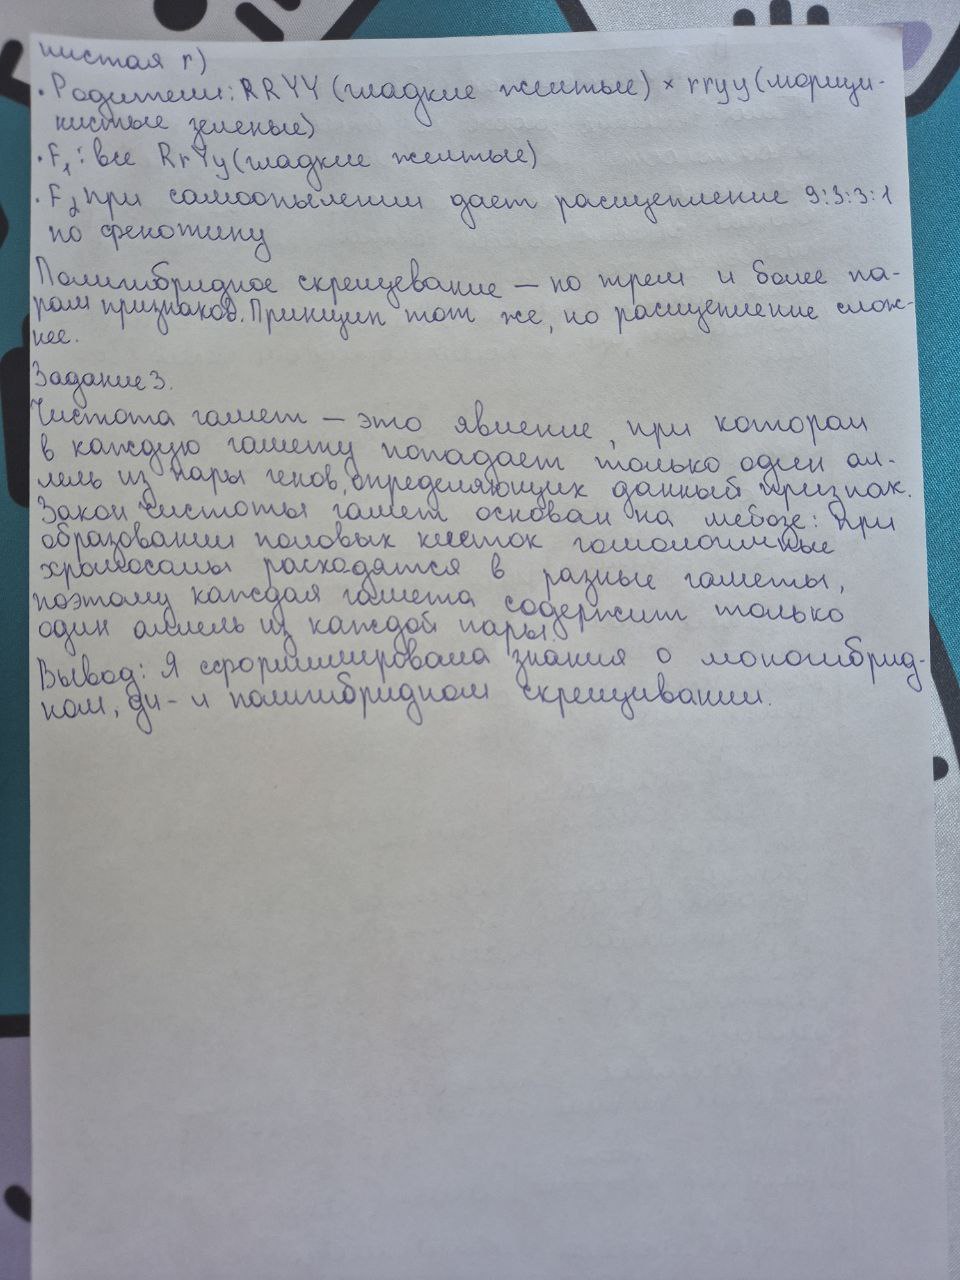 нистая r)
· Родители: RRYY (гладкие желтые) × rryy (морщи-
нистые зеленые)
· F₁: все RrYy (гладкие желтые)
· F₂ при самоопылении дает расщепление 9:3:3:1
по фенотипу
Полигибридное скрещевание — по трем и более па-
рам признаков. Принцип тот же, но расщепление слож-
нее.
Задание 3.
Чистота гамет — это явление, при котором
в каждую гамету попадает только один ал-
лель из пары генов, определяющих данный признак.
Закон чистоты гамет основан на мейозе: при
образовании половых клеток гомологичные
хромосомы расходятся в разные гаметы,
поэтому каждая гамета содержит только
один аллель из каждой пары.
Вывод: Я сформмировала знания о моногибрид-
ном, ди- и полигибридном скрещивании.